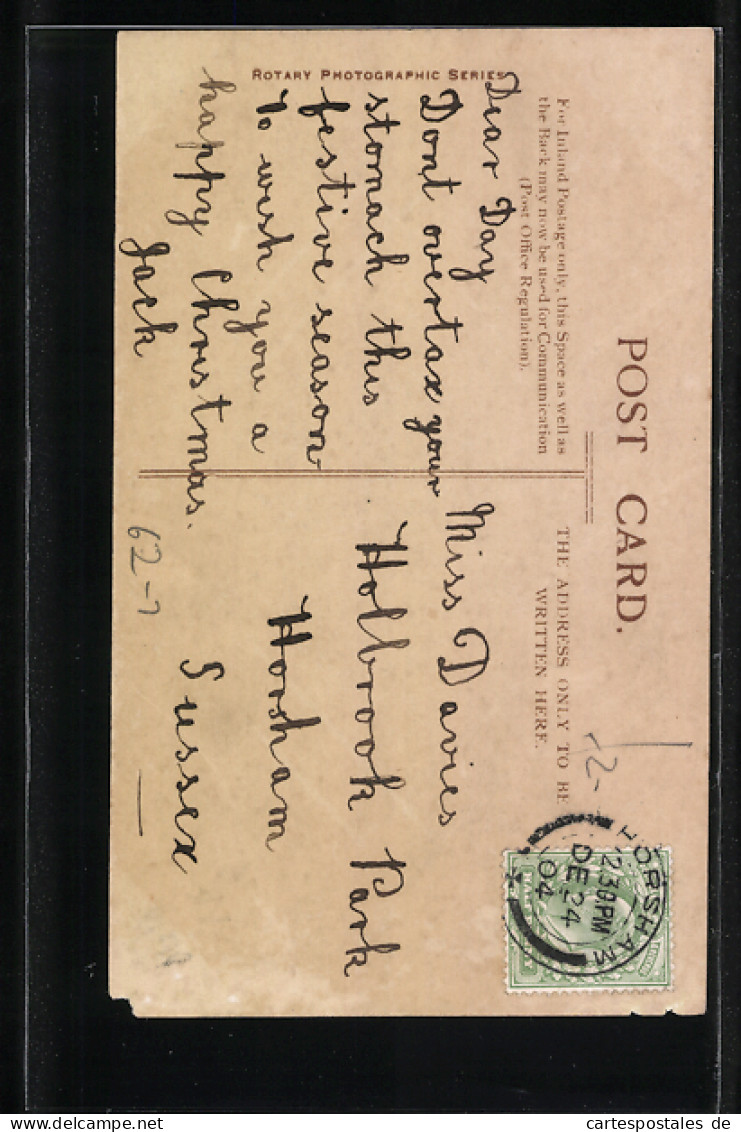 POST CARD.
For Inland Postage only, this Space as well as
the Back may now be used for Communication
(Post Office Regulation).
THE ADDRESS ONLY TO BE
WRITTEN HERE.
ROTARY PHOTOGRAPHIC SERIES
Dear Day
Dont overtax your
stomach this
festive season
To wish you a
happy Christmas.
Jack
Miss Davies
Holbrook Park
Horsham
Sussex
62-7
HORSHAM
2.30PM
DE 24
04
cartespostales de